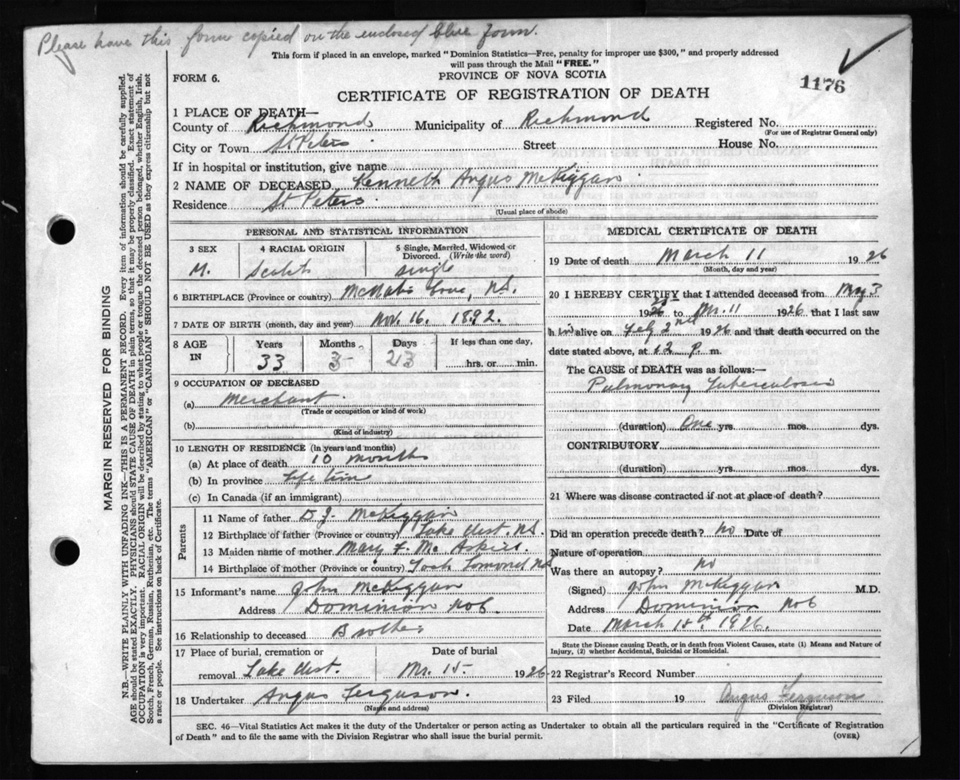 Please have this form copied on the enclosed blue form.
This form if placed in an envelope, marked "Dominion Statistics—Free, penalty for improper use $300," and properly addressed
will pass through the Mail "FREE."
FORM 6.
PROVINCE OF NOVA SCOTIA
1176
CERTIFICATE OF REGISTRATION OF DEATH
1 PLACE OF DEATH—
County of Richmond Municipality of Richmond Registered No.
(For use of Registrar General only)
City or Town St Peters Street House No.
If in hospital or institution, give name
2 NAME OF DECEASED Kenneth Angus McKiggan
Residence St Peters
(Usual place of abode)
MARGIN RESERVED FOR BINDING
N.B.—WRITE PLAINLY WITH UNFADING INK—THIS IS A PERMANENT RECORD. Every item of information should be carefully supplied.
AGE should be stated EXACTLY. PHYSICIANS should STATE CAUSE OF DEATH in plain terms, so that it may be properly classified. Exact statement of
OCCUPATION is very important. RACIAL ORIGIN will be described by stating to what people or tongue the deceased person belonged, whether English, Irish,
Scotch, French, German, Russian, Ruthenian, etc. The terms "AMERICAN" or "CANADIAN" SHOULD NOT BE USED as they express citizenship but not
a race or people. See instructions on back of Certificate.
PERSONAL AND STATISTICAL INFORMATION
3 SEX
M.
4 RACIAL ORIGIN
Scotch
5 Single, Married, Widowed or
Divorced. (Write the word)
single
6 BIRTHPLACE (Province or country) McNabs Cove, N.S.
7 DATE OF BIRTH (month, day and year) Nov. 16. 1892.
8 AGE
IN
Years Months Days
33 3 23
If less than one day,
hrs. or min.
9 OCCUPATION OF DECEASED
(a) Merchant
(Trade or occupation or kind of work)
(b)
(Kind of industry)
10 LENGTH OF RESIDENCE (In years and months)
(a) At place of death 10 months
(b) In province Life time
(c) In Canada (if an immigrant)
Parents
11 Name of father D. J. McKiggan
12 Birthplace of father (Province or country) Lake Uist, N.S.
13 Maiden name of mother Mary F. McAskill
14 Birthplace of mother (Province or country) Loch Lomond NS
15 Informant's name John McKiggan
Address Dominion No 6
16 Relationship to deceased Brother
17 Place of burial, cremation or
removal Lake Uist.
Date of burial
Mr. 15 1926
18 Undertaker Angus Ferguson.
(Name and address)
MEDICAL CERTIFICATE OF DEATH
19 Date of death March 11 1926
(Month, day and year)
20 I HEREBY CERTIFY that I attended deceased from
1926 to Mr. 11 1926 that I last saw
him alive on Feb 2nd 1926 and that death occurred on
date stated above, at 12 P. m.
The CAUSE of DEATH was as follows:—
Pulmonary Tuberculosis
(duration) One yrs. mos. dys.
CONTRIBUTORY
(duration) yrs. mos. dys.
21 Where was disease contracted if not at place of death?
Did an operation precede death? No Date of
Nature of operation
Was there an autopsy? No
(Signed) John McKiggan M.D.
Address Dominion No 6
Date March 15th 1926.
State the Disease causing Death, or in Death from Violent Causes, state (1) Means and Nature of
Injury, (2) whether Accidental, Suicidal or Homicidal.
22 Registrar's Record Number
23 Filed 19 Angus Ferguson
(Division Registrar)
SEC. 46—Vital Statistics Act makes it the duty of the Undertaker or person acting as Undertaker to obtain all the particulars required in the "Certificate of Registration
of Death" and to file the same with the Division Registrar who shall issue the burial permit.
(OVER)